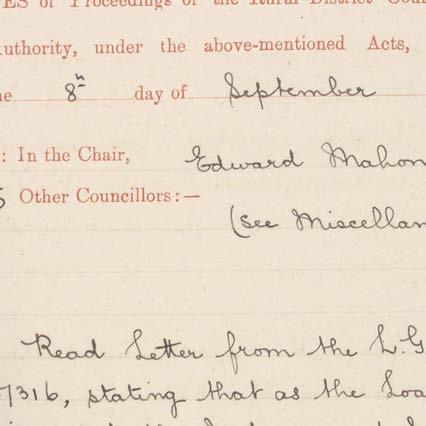 ES of Proceedings of the Rural District
Authority, under the above-mentioned Acts,
8th day of September
: In the Chair, Edward Mahon
5 Other Councillors:—
(see Miscellan
Read Letter from the L.G
7316, stating that as the Loa